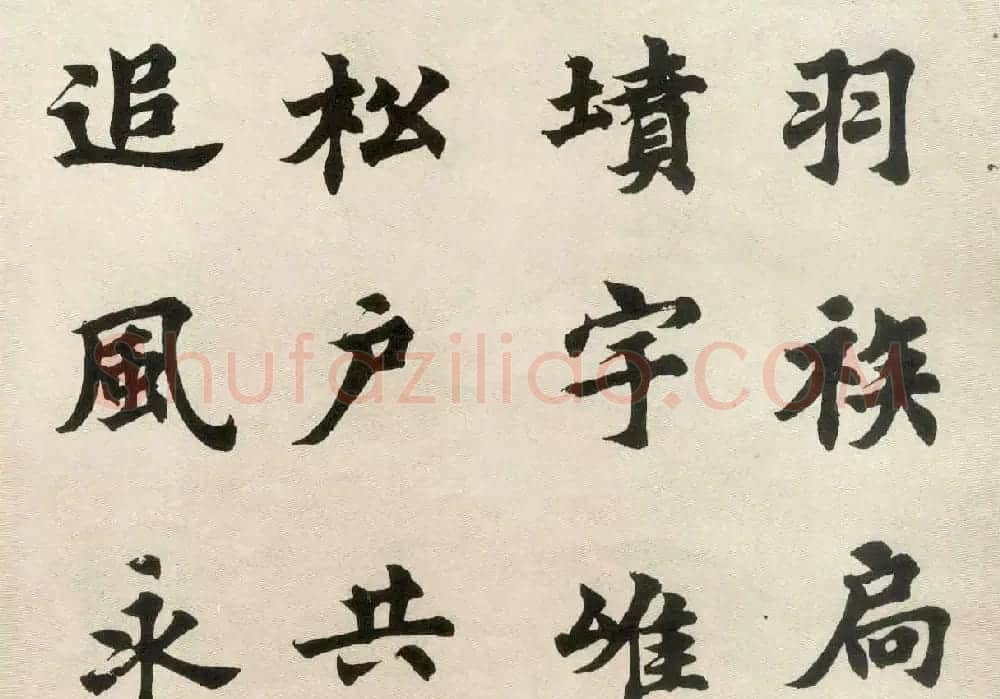 羽族扃
墳宇惟
松户共
追風永
shufaziliao.COM